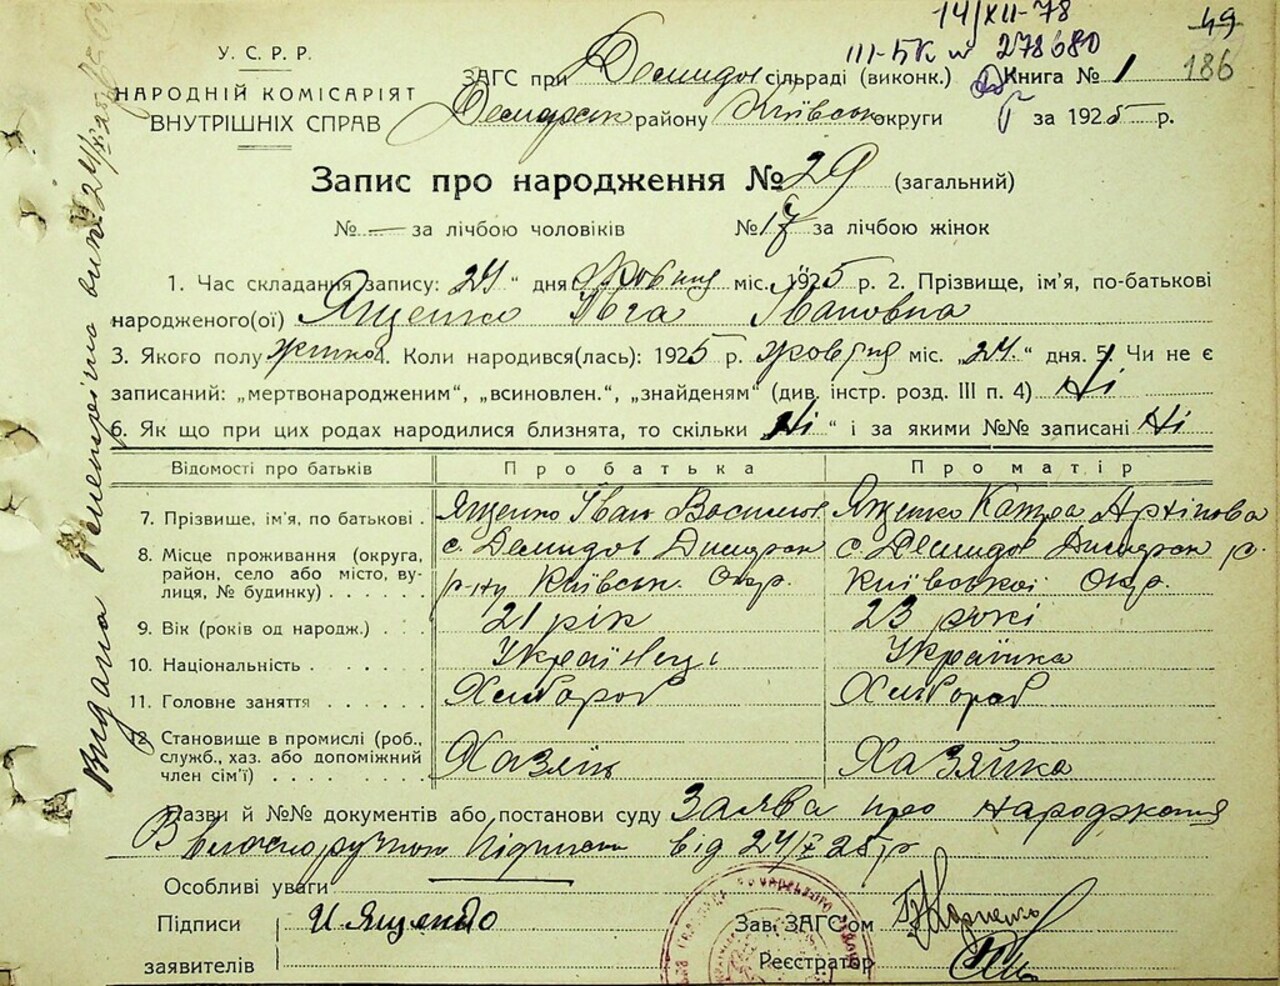 14/XII-78
III-БК № 278680
49
186
У. С. Р. Р.
НАРОДНІЙ КОМІСАРІЯТ
ВНУТРІШНІХ СПРАВ
ЗАГС при Демидов сільраді (виконк.) Книга № 1
Димерськ району Київськ округи за 1925 р.
Запис про народження № 29 (загальний)
№ — за лічбою чоловіків № 17 за лічбою жінок
1. Час складання запису: „24“ дня жовтня міс. 1925 р. 2. Прізвище, ім'я, по-батькові
народженого(ої) Ященко Івановна
3. Якого полу жінка 4. Коли народився(лась): 1925 р. жовтня міс. „24.“ дня. 5. Чи не є
записаний: „мертвонародженим“, „всиновлен.“, „знайденям“ (див. інстр. розд. III п. 4) Ні
6. Як що при цих родах народилися близнята, то скільки „Ні“ і за якими №№ записані Ні
Відомості про батьків Про батька Про матір
7. Прізвище, ім'я, по батькові . Ященко Іван Василов Ященко Катра Архіпова
8. Місце проживання (округа, район, село або місто, вулиця, № будинку) с. Демидов Димерськ р-ну Київськ. Окр. с. Демидов Димерськ р. Київської Окр.
9. Вік (років од народж.) . . . 21 рік 23 рокі
10. Національність . . . . . . Українець Українка
11. Головне заняття . . . . . . Хлібороб Хлібороб
12. Становище в промислі (роб., служб., хаз. або допоміжний член сім'ї) . . . . . . Хазяїн Хазяйка
Назви й №№ документів або постанови суду Заява про народження
В власноручною підписом від 24/X 25 р
Особливі уваги
Підписи И Ященко Зав. ЗАГСом
заявителів Реєстратор
Видана